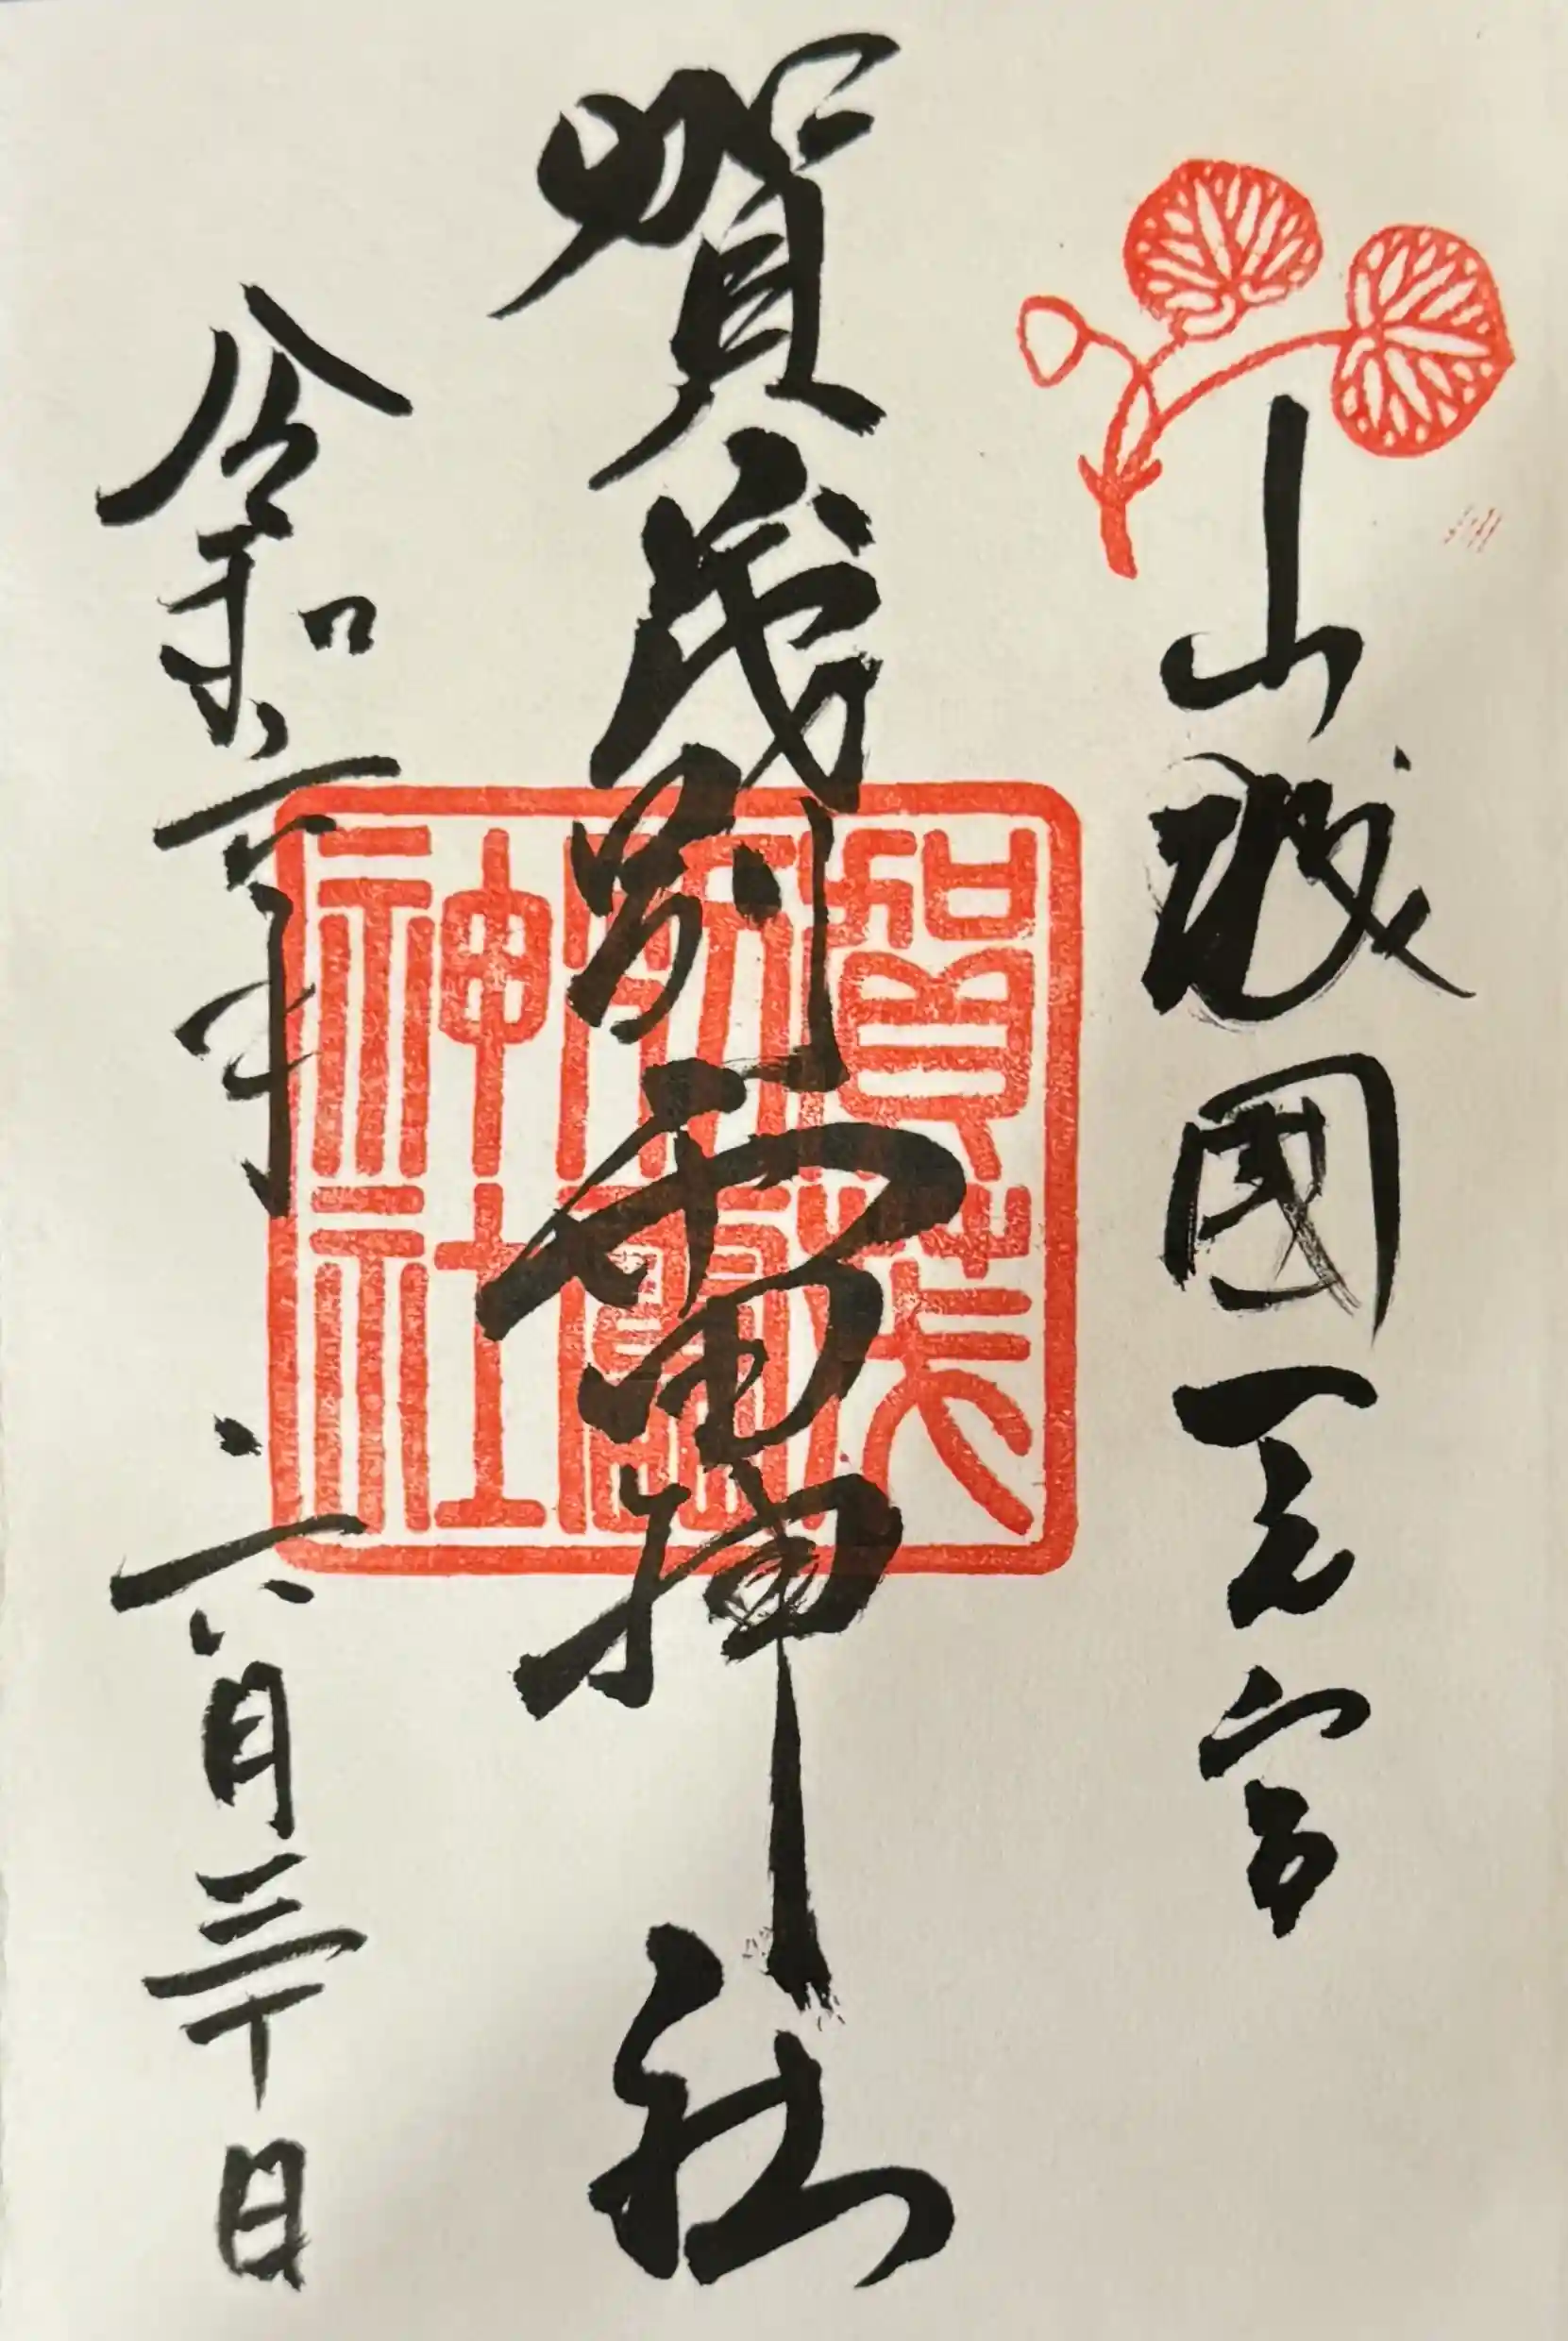 山城國一之宮
賀茂別雷神社
賀茂別雷神社
令和六年
六月三十日